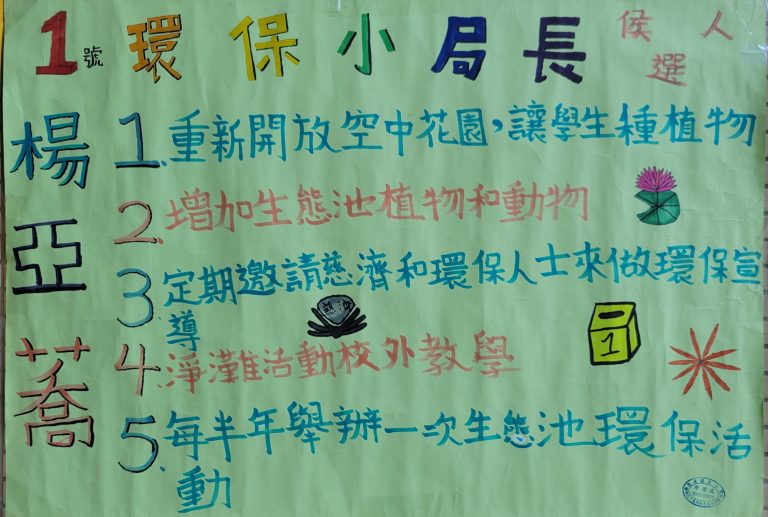 1號 環保小局長 候選人
楊亞蕎
1.重新開放空中花園,讓學生種植物
2.增加生態池植物和動物
3.定期邀請慈濟和環保人士來做環保宣
導
慈濟
1
4.淨灘活動校外教學
5.每半年舉辦一次生態池環保活
動